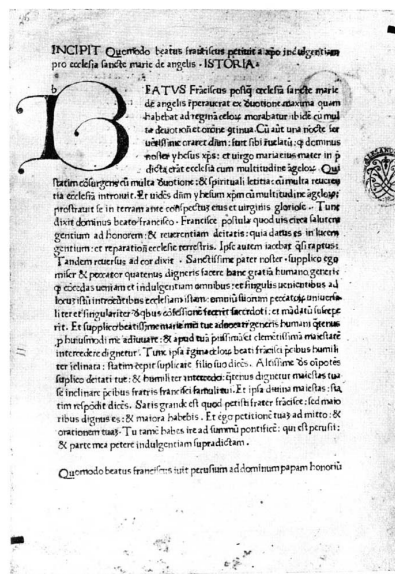 INCIPIT Quomodo beatus franciscus petiuit a xpo indulgentiam
pro ecclesia sancte marie de angelis · ISTORIA ·
b
BEATVS Frãciscus postq̃ ecclesiã sancte marie
de angelis repauerat ex deuotione maxima quam
habebat ad reginã celoꝝ morabatur ibidẽ cũ mul
ta deuotiõe et orõne ꝯtinua. Cũ aũt una nocte fer
uẽtissime oraret dñm: fuit sibi reuelatũ: q̃ dominus
noster yhesus xp̃s: et uirgo maria eius mater in p̃
dicta erãt ecclesia cum multitudine ãgeloꝝ. Qui
statim cõsurgens cũ multa deuotione: & spirituali letitia: cũ multa reueren
tia ecclesiã introiuit. Et uidẽs dñm yhesum xpm cũ multitudine ãgeloꝝ:
prostrauit se in terram ante conspectus eius et uirginis gloriose. Tunc
dixit dominus beato francisco. Francisce postula quod uis circa salutem
gentium ad honorem: & reuerentiam deitatis: quia datus es in lucem
gentium: et reparationẽ ecclesie terrestris. Ipse autem iacebat q̃si raptus:
Tandem reuersus ad cor dixit. Sanctissime pater noster. supplico ego
miser & peccator quatenus digneris facere hanc gratiã humano generi:
q̃ cõcedas ueniam et indulgentiam omnibus: et singulis uenientibus ad
locũ istũ introeũtibus ecclesiam istam: omniũ suorum peccatoꝝ uniuersa
liter et singulariter de qbus cõfessionẽ fecerĩt sacerdoti: et mãdatũ suscepe
rit. Et supplico beatissime marie mr̃i tue aduocate generis humani q̃tenus
p huiusmodi me adiuuare: & apud tuã piissimã et clemẽtissimã maiestatẽ
intercedere dignetur. Tunc ipsa regina celoꝝ beati frãcisci p̃cibus humili
ter ĩclinata: statim cepit suplicare filio suo dicẽs. Altissime d̃s oĩpotẽs
suplico deitati tue: & humiliter intercedo: q̃tenus dignetur maiestas tua
se inclinare p̃cibus fratris frãcisci famuli tui. Et ipsa diuina maiestas: sta
tim respõdit dicẽs. Satis grande est quod petisti frater frãcisce: sed maio
ribus dignus es: & maiora habebis. Et ego petitionẽ tuaꝫ admitto: &
orationem tuaꝫ. Tu tamẽ habes ire ad summũ pontificẽ: qui est perusii:
& parte mea petere indulgentiam supradictam.
Quomodo beatus franciscus iuit perusium ad dominum papam honoriũ